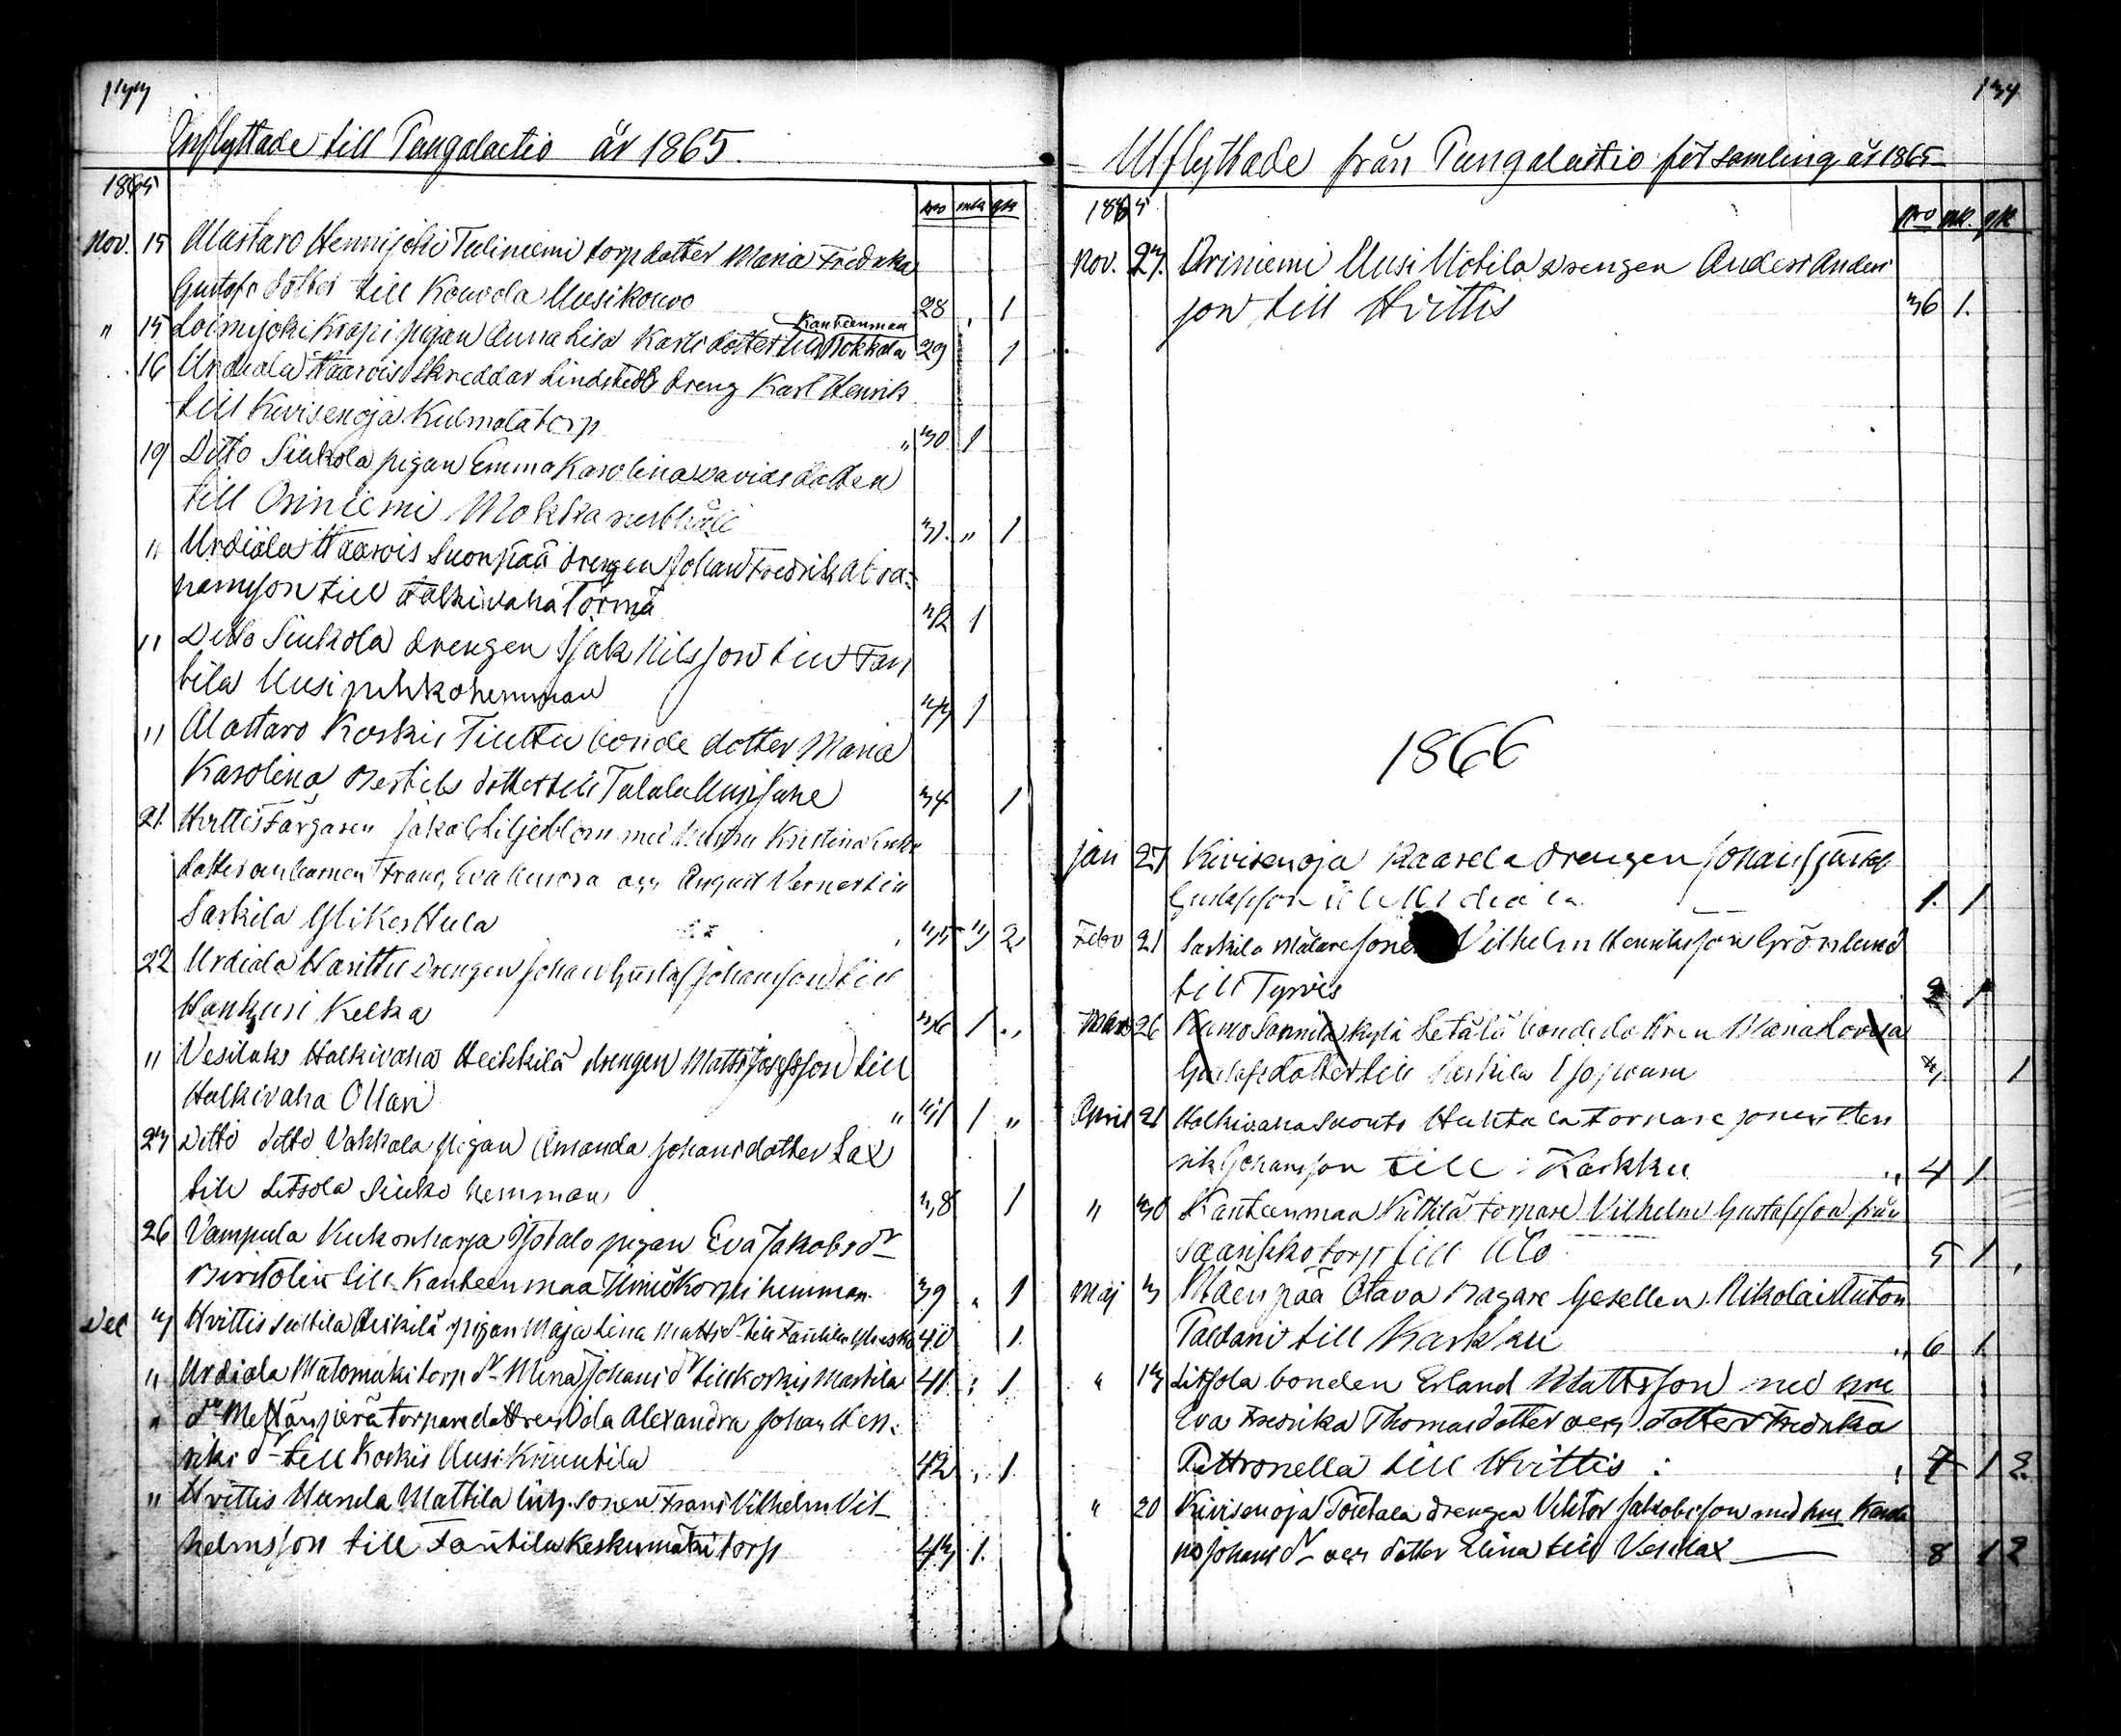 133
Inflyttade till Pungalaitio år 1865.
1865
Nro mk qk
Nov. 15 Alastaro Hennijoki Tuliniemi torp dotter Maria Fredrika
Gustafs dotter till Kouvola Uusikouvo 28 , 1
" 15 Loimijoki Krapi pigan Anna Lisa Karls dotter till Kanteenmaa Rokkola 29 1
16 Urdiala Haarois Skreddar Lindstedts dreng Karl Henrik
till Kivisenoja Kulmala torp " 30 1
19 Ditto Siukola pigan Emma Karolina Davids dotter
till Oriniemi Mokka 31. " 1
" Urdiala Haarois Suonpää drengen Johan Fredrik Abra-
hamsson till Halkivaha Törmä 32 1
" Ditto Siukola drengen Isak Nilsson till Tan
tila Uusipuhko hemman 33 1
" Alastaro Koskis Tiuttu bonde dotter Maria
Karolina Bertils dotter till Talala Uusijune 34 1
21. Hvittis Färgaren Jakob Liljeblom med hustru Kristina
dotter och barnen Frans, Eva Aurora och August Verner till
Sarkila Yliker 35 3 2
22 Urdiala Haritu drengen Johan Gustaf Johansson till
Hankuri Kelka 36 1 "
" Vesilaks Halkivaha Heikkilä drengen Matts Josefsson till
Halkivaha Ollari " 37 1 "
23 Ditto ditto Vahkala pigan Amanda Johans dotter Lax
till Litsola Siuko hemman 38 1
26 Vampula Kukonharja Isotalo pigan Eva Jakobs dr
till Kanteenmaa hemman. 39 " 1
Dec 3 Hvittis Suttila Heikilä pigan Maja Lena Matts dr till 40 1.
" Urdiala Matomäki torp dr Mina Johans dr till Koskis Marttila 41 : 1
" do Metsänperä torpare dottren Ida Alexandra Johan Hen-
riks dr till Koskis Uusi Knuutila 42 , 1.
" Hvittis Hunda Mattila inh. sonen Frans Vilhelm Vil-
helmsson till Tantila Keskumäki torp 43 1.
134
Utflyttade från Pungalaitio församling år 1865
1865
Nro mk. qk
Nov. 27. Oriniemi Uusi Uotila drengen Anders Anders
son till Hvittis 36 1.
1866
Jan 27 Kivisenoja Raasela drengen Johan Gustaf
Gustafsson till Urdiala 1. 1.
Febr 21 Sarkila Målare sonen Vilhelm Henriksson Grönlund
till Tyrvis 2 1
Mars 26 Kumo Sonnila kylä Setälä bonde dottren Maria Lovisa
Gustafs dotter till Sarkila 3. 1
April 21 Halkivaha Suonto Huhtala torpare sonen Hen
rik Johansson till Karkku " 4 1.
" 30 Kanteenmaa Kittilä torpare Vilhelm Gustafsson från
Saarikko torp till Åbo 5 1 ,
Maj 3 Mäenpää Otava Bagare Gesellen Nikolai Anton
Paldani till Karkku " 6 1.
" 13 Litsola bonden Erland Mattsson med hru
Eva Fredrika Thomas dotter och dotter Fredrika
Pettronella till Hvittis : , 7 1 2.
" 20 Kivisenoja Töietala drengen Viktor Jakobsson med hru Karoli
na Johans dr och dotter Elina till Vesilax 8 1 2